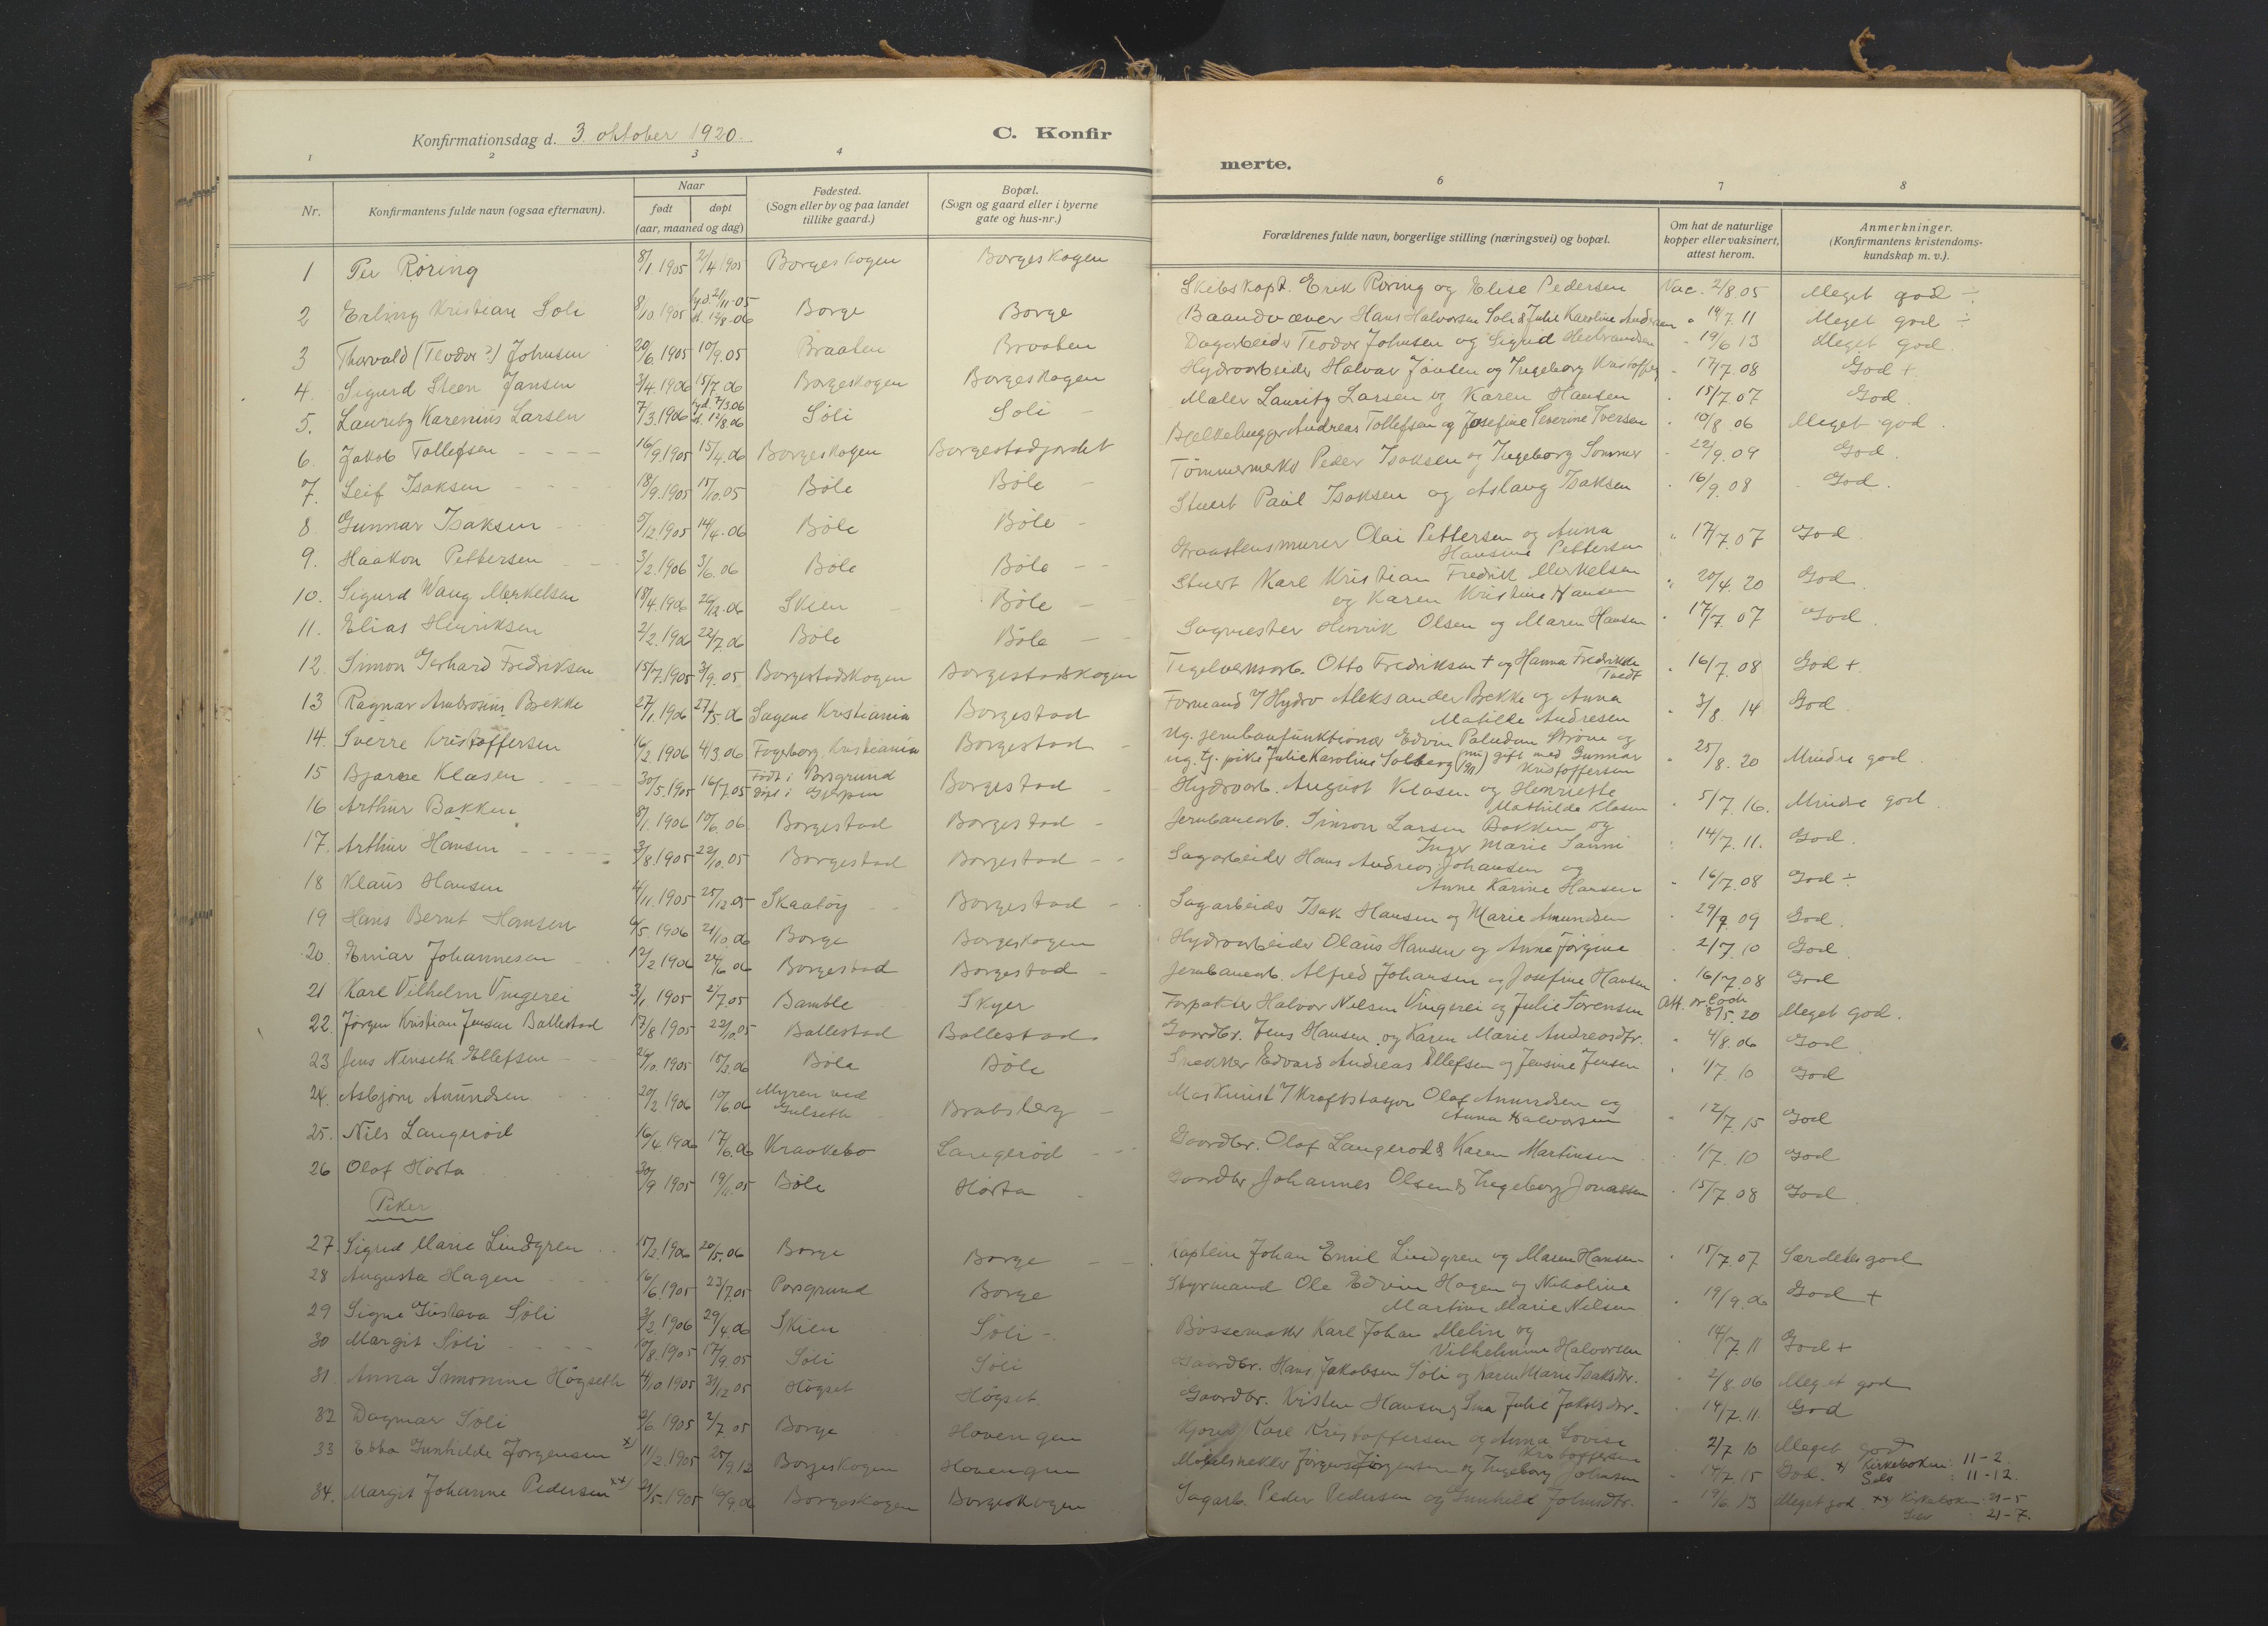 Konfirmationsdag d. 3 oktober 1920.
C. Konfir
merte.
1 2 3 4
6 7 8
Nr. Konfirmantens fulde navn (ogsaa efternavn). Naar født døpt (aar, maaned og dag) Fødested. (Sogn eller by og paa landet tillike gaard.) Bopæl. (Sogn og gaard eller i byerne gate og hus-nr.)
Forældrenes fulde navn, borgerlige stilling (næringsvei) og bopæl. Om hat de naturlige kopper eller vaksinert, attest herom. Anmerkninger. (Konfirmantens kristendoms-kundskap m. v.).
1 Per Röring 8/1 1905 2/4 1905 Borgeskogen Borgeskogen Skibskapt. Erik Röring og Elise Pedersen Vac. 2/8 05 Meget god ÷
2 Erling Kristian Soli 8/10 1905 hjd. 2/11-05 st. 12/8-06 Borge Borge Baandvæver Hans Halvorsen Soli & Julie Karoline Andersen " 14/7 11 Meget god ÷
3 Thorvald (Teodor?) Johnsen 20/6 1905 10/9. 05 Braaten Braaten Dagarbeider Teodor Johnsen og Sigrid Herbrandsen " 19/6 13 Meget god
4. Sigurd Steen Jansen 3/4. 1906 15/7. 06 Borgeskogen Borgeskogen Hydroarbeider Halvar Jansen og Ingeborg Kristoffers " 17/7. 08 God +
5. Lauritz Karenius Larsen 7/3. 1906 hjd. 7/3. 06 st. 12/8. 06 Söli Soli Maler Lauritz Larsen og Karen Hansen " 15/7. 07 God
6. Jakob Tollefsen 16/9. 1905 15/4. 06 Borgeskogen Borgestadjordet Bjelkehugger Andreas Tollefsen og Josefine Severine Iversen " 10/8 06 Meget god
7. Leif Isaksen 18/9. 1905 15/10. 05 Böle Böle Tömmermerk. Peder Isaksen og Ingeborg Sommer " 22/9. 09 God
8 Gunnar Isaksen 5/12. 1905 14/4. 06 Böle Böle Stuert Paul Isaksen og Aslaug Isaksen " 16/9. 08 God.
9. Haakon Pettersen 3/2. 1906 3/6. 06 Böle Böle Graastensmurer Olai Pettersen og Anna Hansine Pettersen " 17/7. 07 God
10. Sigurd Wang Merkelsen 18/4. 1906 26/12. 06 Skien Böle Stuert Karl Kristian Fredrik Merkelsen og Karen Kristine Hansen " 20/4. 20 God
11. Elias Henriksen 2/2. 1906 22/7. 06 Böle Böle Sagmester Henrik Olsen og Maren Hansen " 17/7 07 God
12. Simon Gerhard Fredriksen 15/7. 1905 3/9. 05 Borgestadskogen Borgestadskogen Tegelverksarb. Otto Fredriksen + og Hanna Fredrikke Tvedt " 16/7. 08 God +
13 Ragnar Ambrosius Bekke 27/1. 1906 27/5. 06 Sagene Kristiania Borgestad Formand v/ Hydro Aleksander Bekke og Anna Matilde Andresen " 3/8. 14 God
14. Sverre Kristoffersen 16/2. 1906 4/3. 06 Fagerborg, Kristiania Borgestad Ug. jernbanfunktionær Edvin Paludan Ström og ug. tj. pike Julie Karoline Solberg (nu gift med Gunnar Kristoffersen " 25/8. 20 Mindre god
15 Bjarne Klasen 30/5. 1905 16/7. 05 Født i Porsgrund döpt i Gjerpen Borgestad Hydroarb. August Klasen og Henriette Mathilde Klasen " 5/7. 16. Mindre god
16 Arthur Bakken 8/1. 1906 10/6. 06. Borgestad Borgestad Jernbanearb. Simon Larsen Bakken og Inger Marie Sanni " 14/7. 11. God.
17. Arthur Hansen 3/8. 1905 22/10. 05 Borgestad Borgestad Sagarbeider Hans Andreas Johansen og Anne Karine Hansen " 16/7. 08 God ÷
18 Klaus Hansen 4/11. 1905 25/12. 05 Skaatöy Borgestad Sagarbeider Isak Hansen og Marie Amundsen " 29/9. 09 God.
19 Hans Bernt Hansen 4/5. 1906 21/10. 06 Borge Borgeskogen Hydroarbeider Olaus Hansen og Anne Jörgine " 2/7. 10 God
20. Einar Johannesen 12/2 1906 24/6 06 Borgestad Borgestad Jernbanearb. Alfred Johansen og Josefine Hansen " 16/7. 08 God
21 Karl Vilhelm Vingerei 3/1 1905 2/7. 05 Bamble Skyer Forpakter Halvor Nelsen Vingerei og Julie Sorensen Att. 8/5. 20 Meget god.
22. Jörgen Kristian Jensen Ballestad 17/8 1905 22/10. 05 Ballestad Ballestad Gaardbr. Jens Hansen og Karen Marie Andreasdtr. " 4/8. 06 God
23 Jens Nenseth Ellefsen 26/10. 1905 18/3. 06 Böle Böle Snekker Edvard Andreas Ellefsen og Jensine Jensen " 1/7. 10 God
24. Asbjörn Amundsen 20/2 1906 10/6. 06 Myren ved Gulseth Bratsberg Maskinist v/ Kraftstasjon Olaf Amundsen og Anna Halvorsen " 12/7. 15 God
25. Nils Langeröd 16/4 1906 17/6. 06 Kraakebo Langeröd Gaardbr. Olaf Langerod & Karen Martinsen 1/7. 10 God
26 Olaf Hörta 30/9 1905 19/11. 05 Böle Hörta Gaardbr Johannes Olsen & Ingeborg Jonassen " 15/7. 08 God
Piker
27. Sigrid Marie Lindgren 15/2. 1906 20/5. 06 Borge Borge Kaptein Johan Emil Lindgren og Maren Hansen " 15/7. 07 Særdeles god
28 Augusta Hagen 16/6. 1905 23/7. 05 Porsgrund Borge Styrmand Ole Edvin Hagen og Nikoline Martine Marie Nilsen " 19/9. 06 God +
29 Signe Gustava Söli 3/2. 1906 29/4. 06 Skien Söli Bössemaker Karl Johan Melin og Vilhelmine Halvorsen " 14/7. 11 God +
30 Margit Söli 10/8. 1905 17/9. 05 Söli Söli Gaardbr. Hans Jakobsen Söli og Karen Marie Isaksdtr. " 2/8. 06 Meget god
31 Anna Simonine Högseth 4/10 1905 31/12 05 Högset Högset. Gaardbr. Kristen Hansen og Ina Julie Jakobsdtr. " 14/7. 11. God
32 Dagmar Söli 3/6. 1905 2/7. 05 Borge Hovengen Karl Kristoffersen og Anna Lovise Kristoffersen " 2/7 10 Meget god
33 Ebba Gunhilde Jörgensen x) 11/2. 1905 25/9. 12 Borgeskogen Hovengen Möbelsnekker Jörgen Jörgensen og Ingeborg Johnsen " 14/7. 15 God. x) Kirkeboken: 11-2. Selv : 11-12.
34. Margit Johanne Pedersen xx) 21/5. 1905 16/9. 06 Borgeskogen Borgeskogen Sagarb. Peder Pedersen og Gunhild Johnsdtr. " 19/6. 13 Meget god. xx) Kirkeboken: 21-5 Selv : 21-7.